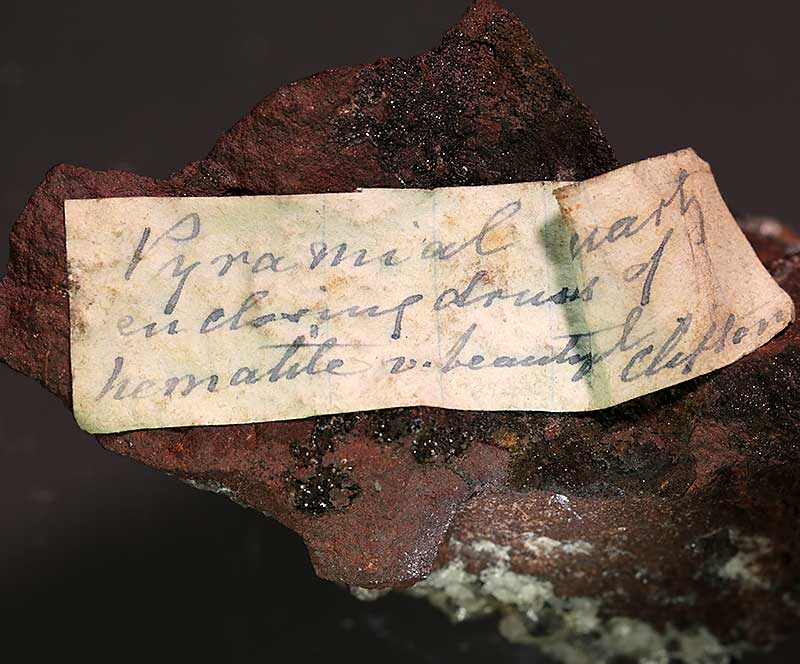 Pyramial quartz
enclosing druses of
hematite v. beautyful Clifton